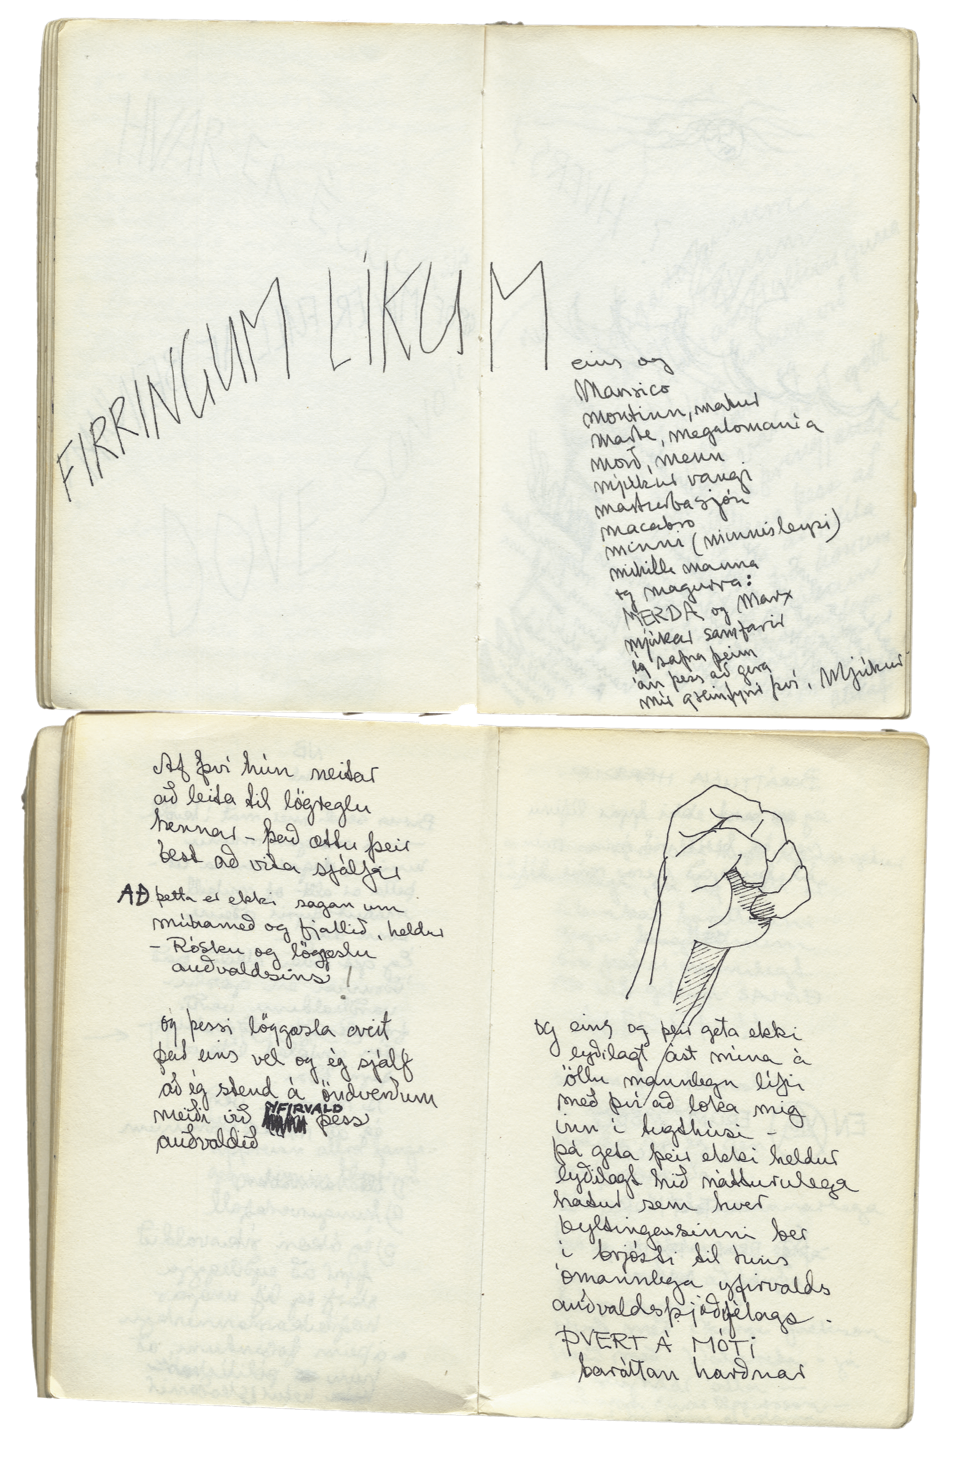 FIRRINGUM LÍKUM
eins og
Mansico
montinn, matur
marte, megalomania
morð, menn
mjúkur vangi
masturbasjón
macabro
minni (minnisleysi)
mikilla manna
og magurra:
MERDA og Marx
mjúkar samfarir
ég safna þeim
án þess að gera
mér grein fyrir því. Mjúkur
Af því hún neitar
að leita til lögreglu
hennar – það ættu þeir
best að vita sjálfir
AÐ þetta er ekki sagan um
múhameð og fjallið, heldur
– Rósku og löggæslu
auðvaldsins!
og þessi löggæsla veit
það eins vel og ég sjálf
að ég stend á öndverðum
meiði við YFIRVALD þess
auðvaldið
og eins og þeir geta ekki
eyðilagt ást mína á
öllu mannlegu lífi
með því að loka mig
inn í tugthúsi –
þá geta þeir ekki heldur
eyðilagt hið náttúrulega
hatur sem hver
byltingarsinni ber
í brjósti til hins
ómannlega yfirvalds
auðvaldsþjóðfélags.
ÞVERT Á MÓTI
baráttan harðnar